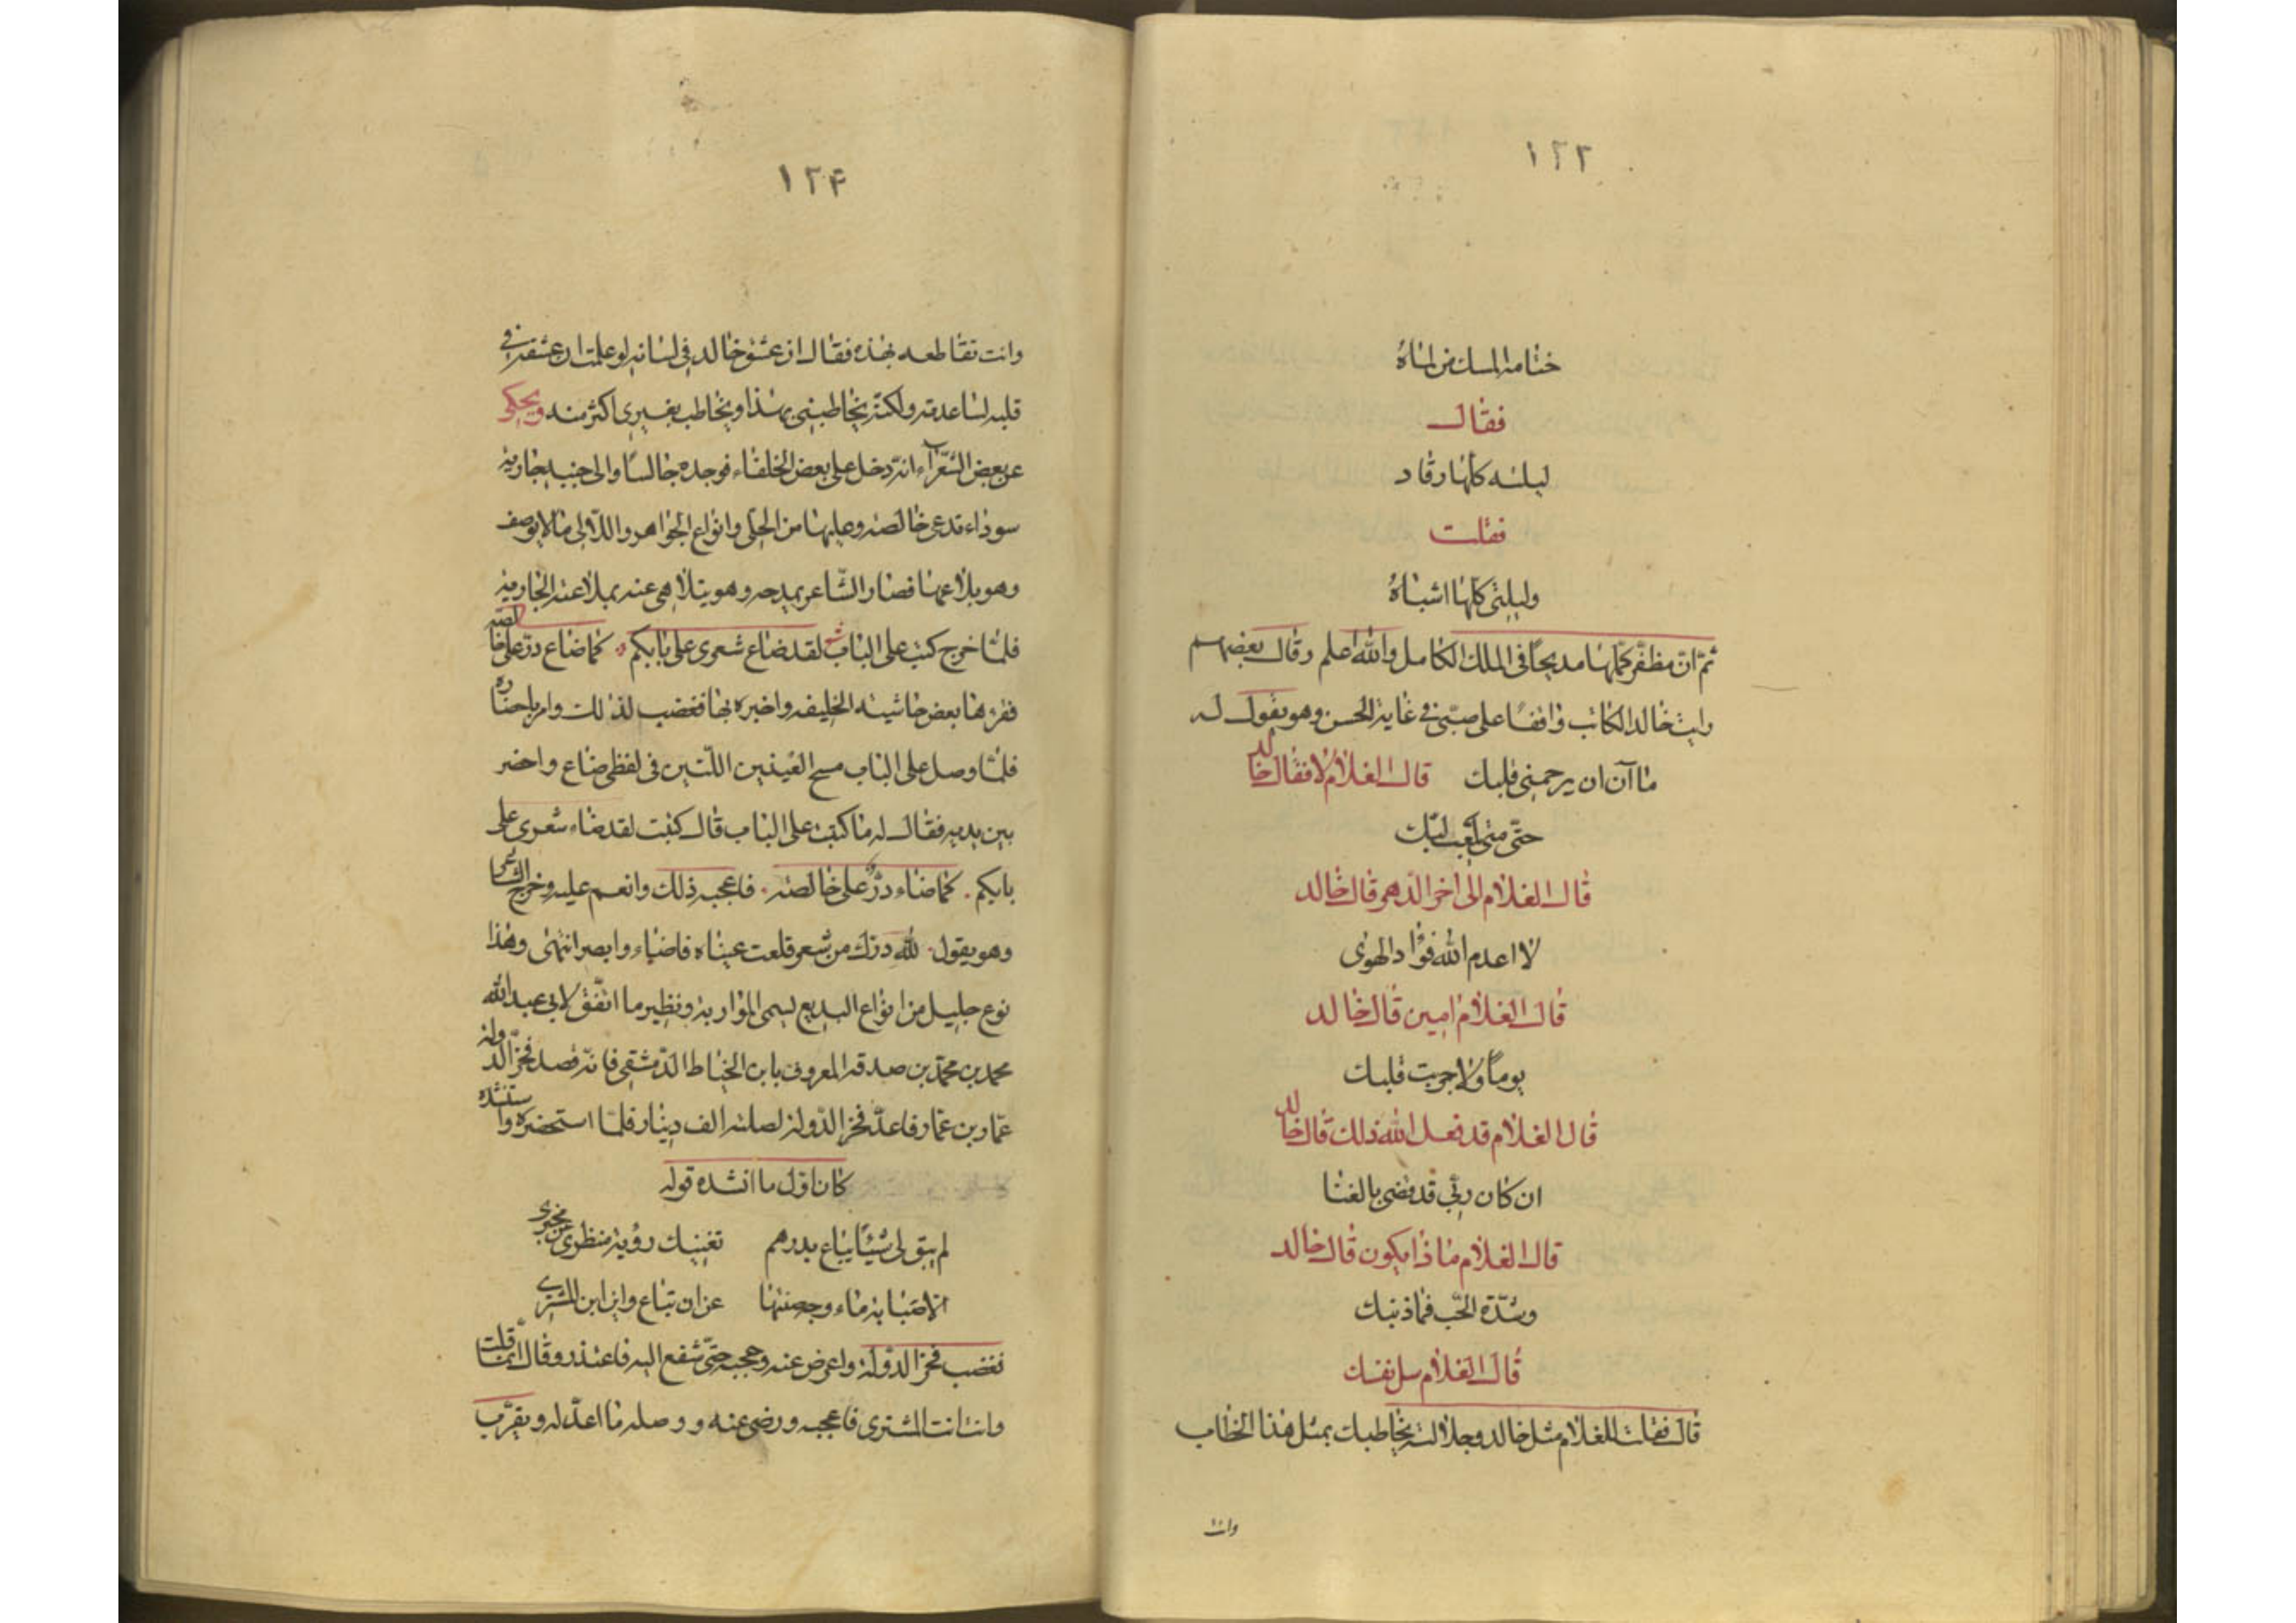 ١٢٣
ختامه المسك من لماه
فقال
ليله كلها رقاد
فقلت
وليلتي كلها اشباه
ثم ان مظفر كملها مديحا في الملك الكامل والله اعلم وقال بعضهم
رايت خالد الكاتب واقفا على صبي في غاية الحسن وهو يقول له
ما آن ان يرحمني قلبك قال الغلام لا فقال خالد
حتى متى يلعب بي حبك
قال الغلام الى اخر الدهر قال خالد
لا اعدم الله فؤاد الهوى
قال الغلام امين قال خالد
يوما ولا جربت قلبك
قال الغلام قد فعل الله ذلك قال خالد
ان كان ربي قد قضى بالفنا
قال الغلام ماذا يكون قال خالد
وشدة الحب فما ذنبك
قال الغلام سل نفسك
قال فقلت للغلام مثل خالد وجلالته يخاطبك بمثل هذا الخطاب
وانت
١٢۴
وانت تقاطعه بهذه فقال ان عشق خالد في لسانه لو علمت ان عشقه في
قلبه لساعدته ولكنه يخاطبني بهذا ويخاطب بغيري اكثر منه ويحكى
عن بعض الشعراء انه دخل على بعض الخلفاء فوجده جالسا والى جنبه جارية
سوداء تدعى خالصه وعليها من الحلى وانواع الجواهر واللآلى ما لا يوصف
وهو يلاعبها فصار الشاعر يمدحه وهو يتلاهى عنه بملاعبة الجارية
فلما خرج كتب على الباب شعر لقد ضاع شعرى على بابكم كما ضاع در على خالصه
فقرءها بعض حاشية الخليفه واخبره بها فغضب لذلك وامر باحضاره
فلما وصل على الباب مسح العينين اللتين في لفظى ضاع واحضر
بين يديه فقال له ما كتبت على الباب قال كتبت لقد ضاء شعرى على
بابكم . كما ضاء در على خالصه . فاعجبه ذلك وانعم عليه وخرج الشاعر
وهو يقول . لله درك من شعر قلعت عيناه فاضاء وابصر انتهى وهذا
نوع جليل من انواع البديع ليسمى المواربة ونظير ما اتفق لابى عبد الله
محمد بن محمد بن صدقه المعروف بابن الخياط الدمشقى فانه قصد فخر الدولة
عمار بن عمار فاعد فخر الدولة لصلته الف دينار فلما استحضره واستنشده
كان اول ما انشده قوله
لم يبق لى شيئا يباع بدرهم تغنيك رؤية منظرى عن مخبرى
الا صبابة ماء وجه صنتها عن ان تباع واين اين المشترى
فغضب فخر الدولة واعرض عنه وحجبه حتى شفع اليه فاعتذر وقال انما قلت
وانت انت المشترى فاعجبه ورضى عنه ووصله ما اعد له ويقرب